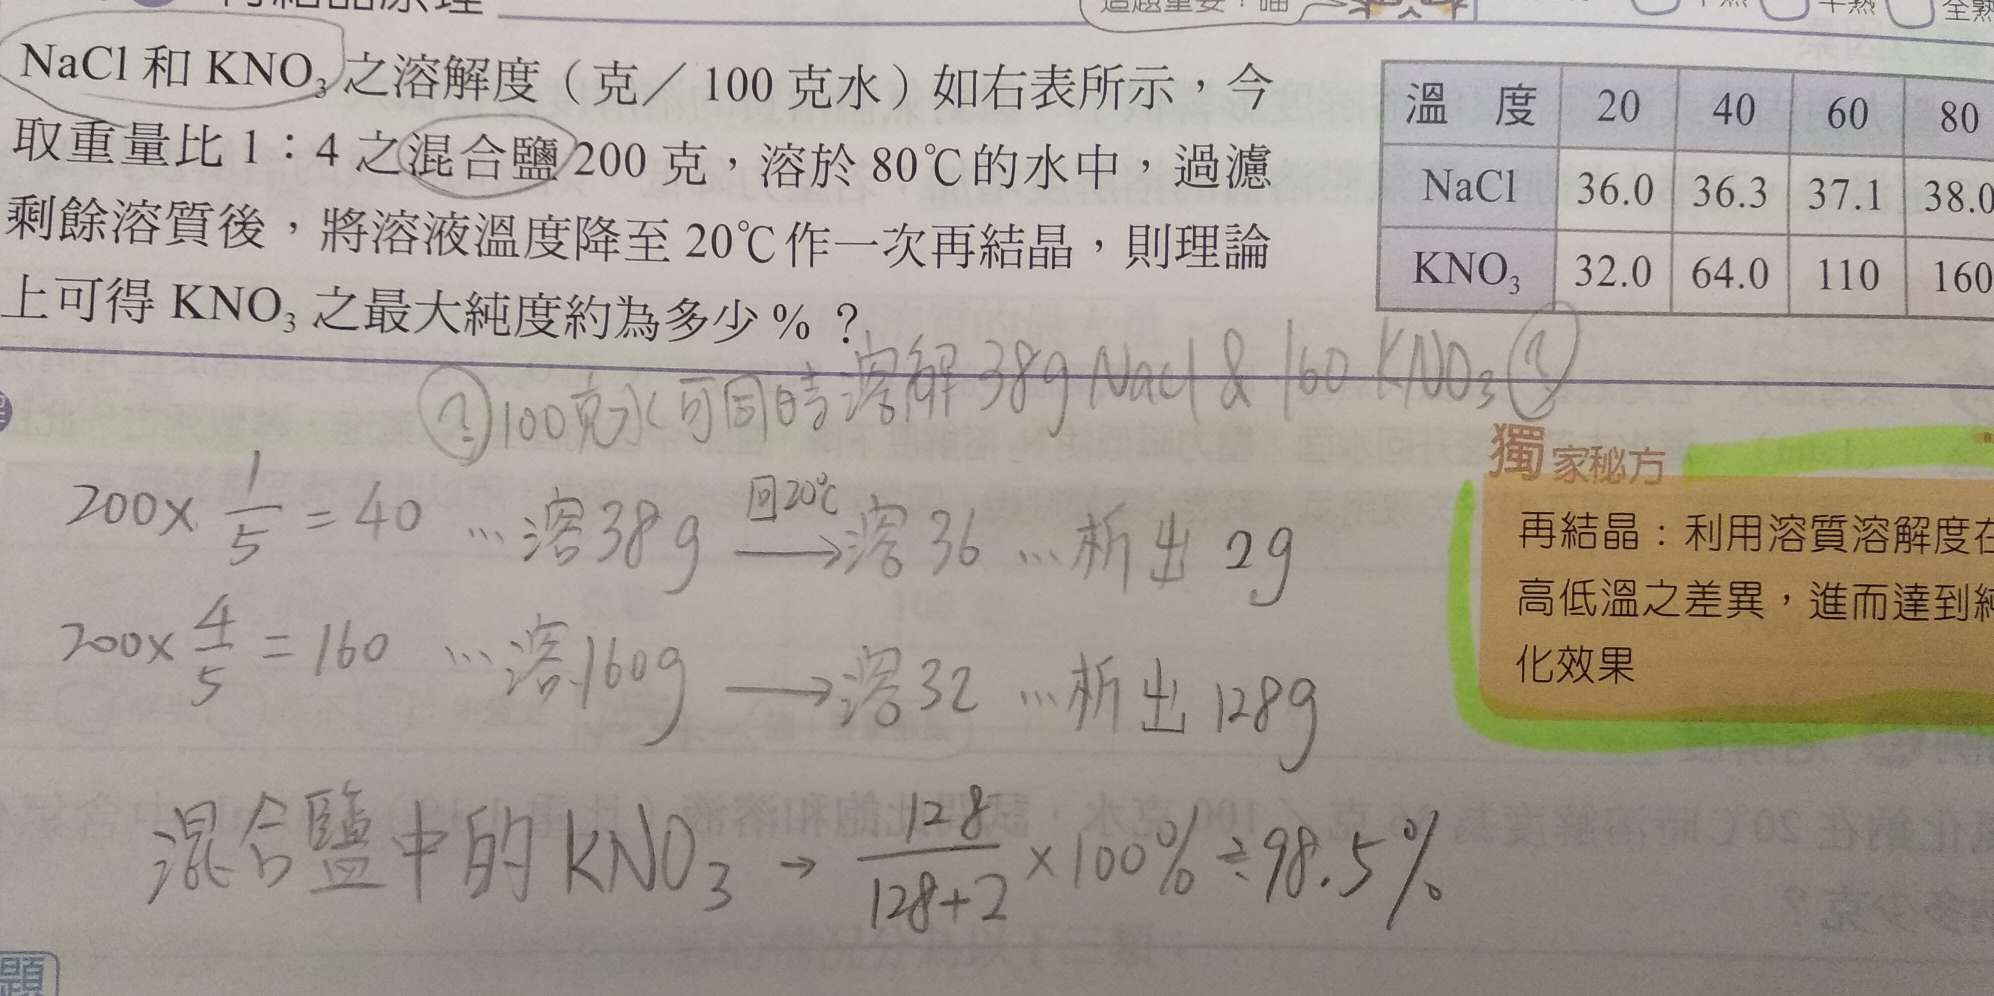 NaCl 和 KNO₃ 之溶解度（克／100 克水）如右表所示，今
取重量比 1：4 之混合鹽 200 克，溶於 80℃的水中，過濾
剩餘溶質後，將溶液溫度降至 20℃作一次再結晶，則理論
上可得 KNO₃ 之最大純度約為多少 % ？
溫 度 20 40 60 80
NaCl 36.0 36.3 37.1 38.0
KNO₃ 32.0 64.0 110 160
? 100克水可同時溶解 38g Nacl & 160 KNO₃ ?
200 × 1/5 = 40 … 溶38g 回20℃ → 溶 36 … 析出 2g
200 × 4/5 = 160 … 溶160g → 溶 32 … 析出 128g
混合鹽中的 KNO₃ → 128/(128+2) × 100% ≑ 98.5%
獨家秘方
再結晶：利用溶質溶解度在
高低溫之差異，進而達到純
化效果
題